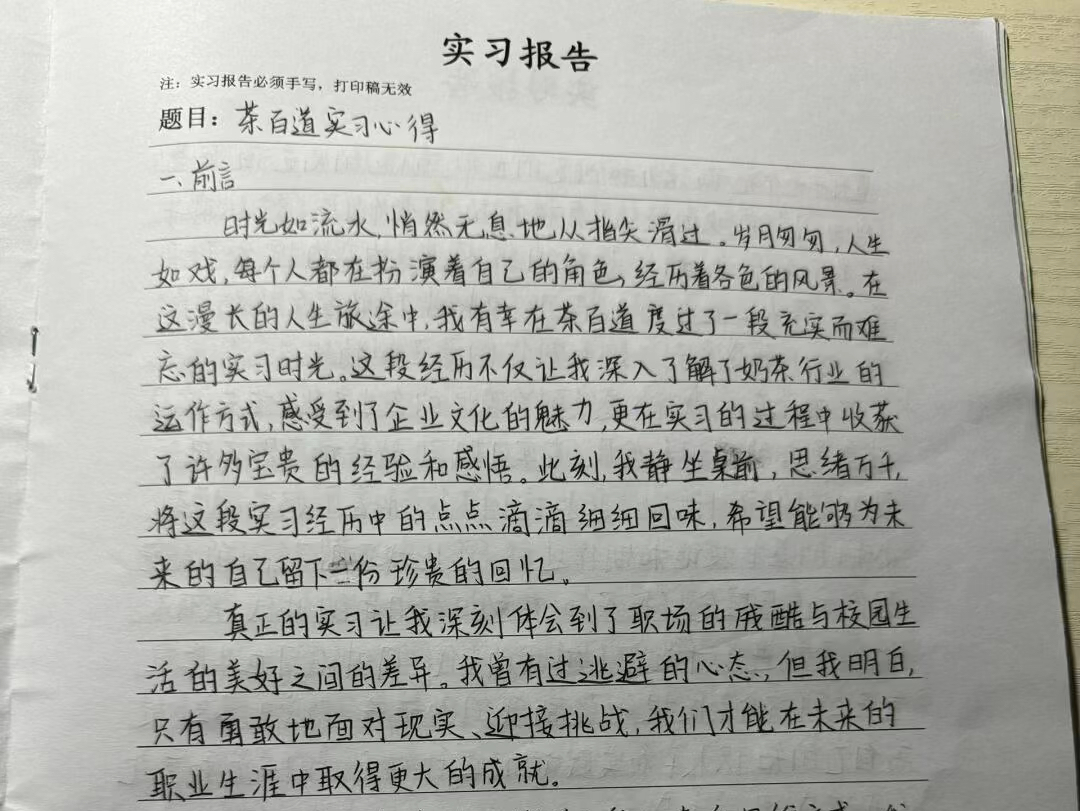 实习报告
注：实习报告必须手写，打印稿无效
题目：茶百道实习心得
一、前言
时光如流水，悄然无息地从指尖滑过。岁月匆匆，人生
如戏，每个人都在扮演着自己的角色，经历着各色的风景。在
这漫长的人生旅途中，我有幸在茶百道度过了一段充实而难
忘的实习时光。这段经历不仅让我深入了解了奶茶行业的
运作方式，感受到了企业文化的魅力，更在实习的过程中收获
了许多宝贵的经验和感悟。此刻，我静坐桌前，思绪万千，
将这段实习经历中的点点滴滴细细回味，希望能够为未
来的自己留下一份珍贵的回忆。
真正的实习让我深刻体会到了职场的残酷与校园生
活的美好之间的差异。我曾有过逃避的心态，但我明白，
只有勇敢地面对现实、迎接挑战，我们才能在未来的
职业生涯中取得更大的成就。